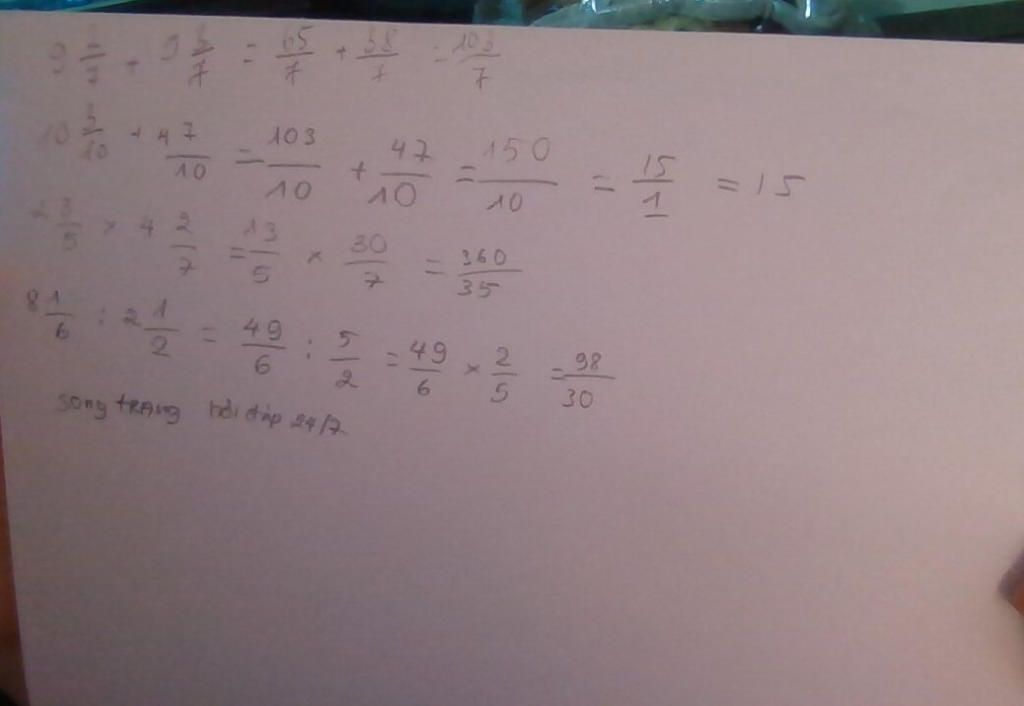 9 2/7 + 9 3/7 = 65/7 + 38/7 = 103/7
10 3/10 + 4 7/10 = 103/10 + 47/10 = 150/10 = 15/1 = 15
2 3/5 × 4 2/7 = 13/5 × 30/7 = 360/35
8 1/6 : 2 1/2 = 49/6 : 5/2 = 49/6 × 2/5 = 98/30
song trang hỏi đáp 24/7